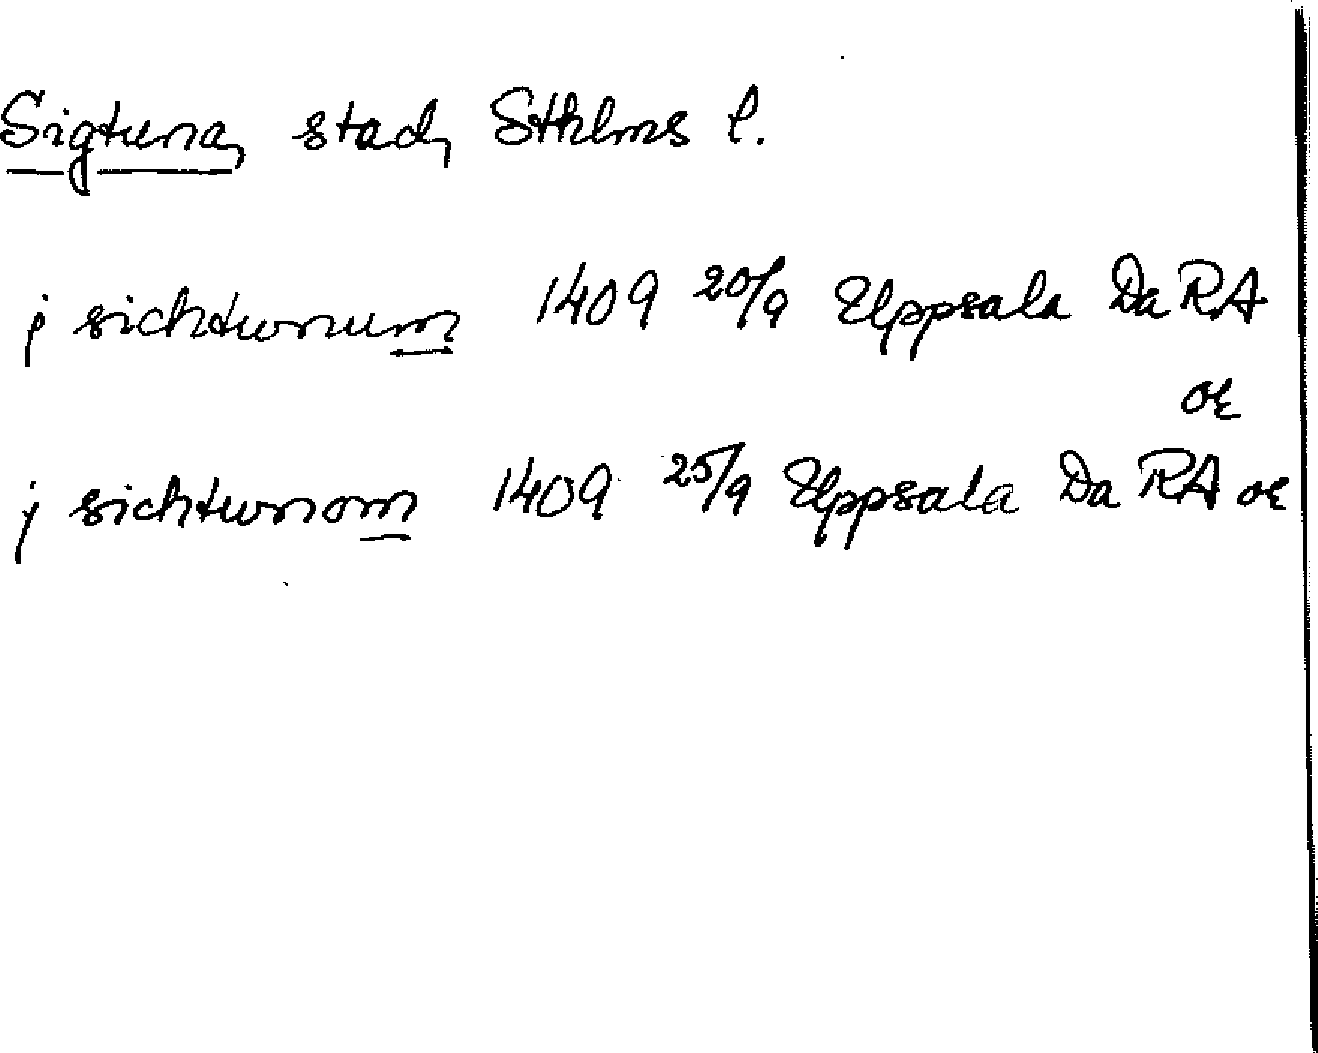 Sigtuna, stad, Sthlms l.
j sichtunum 1409 20/9 Uppsala Da RA
or
j sichtunom 1409 25/9 Uppsala Da RA or